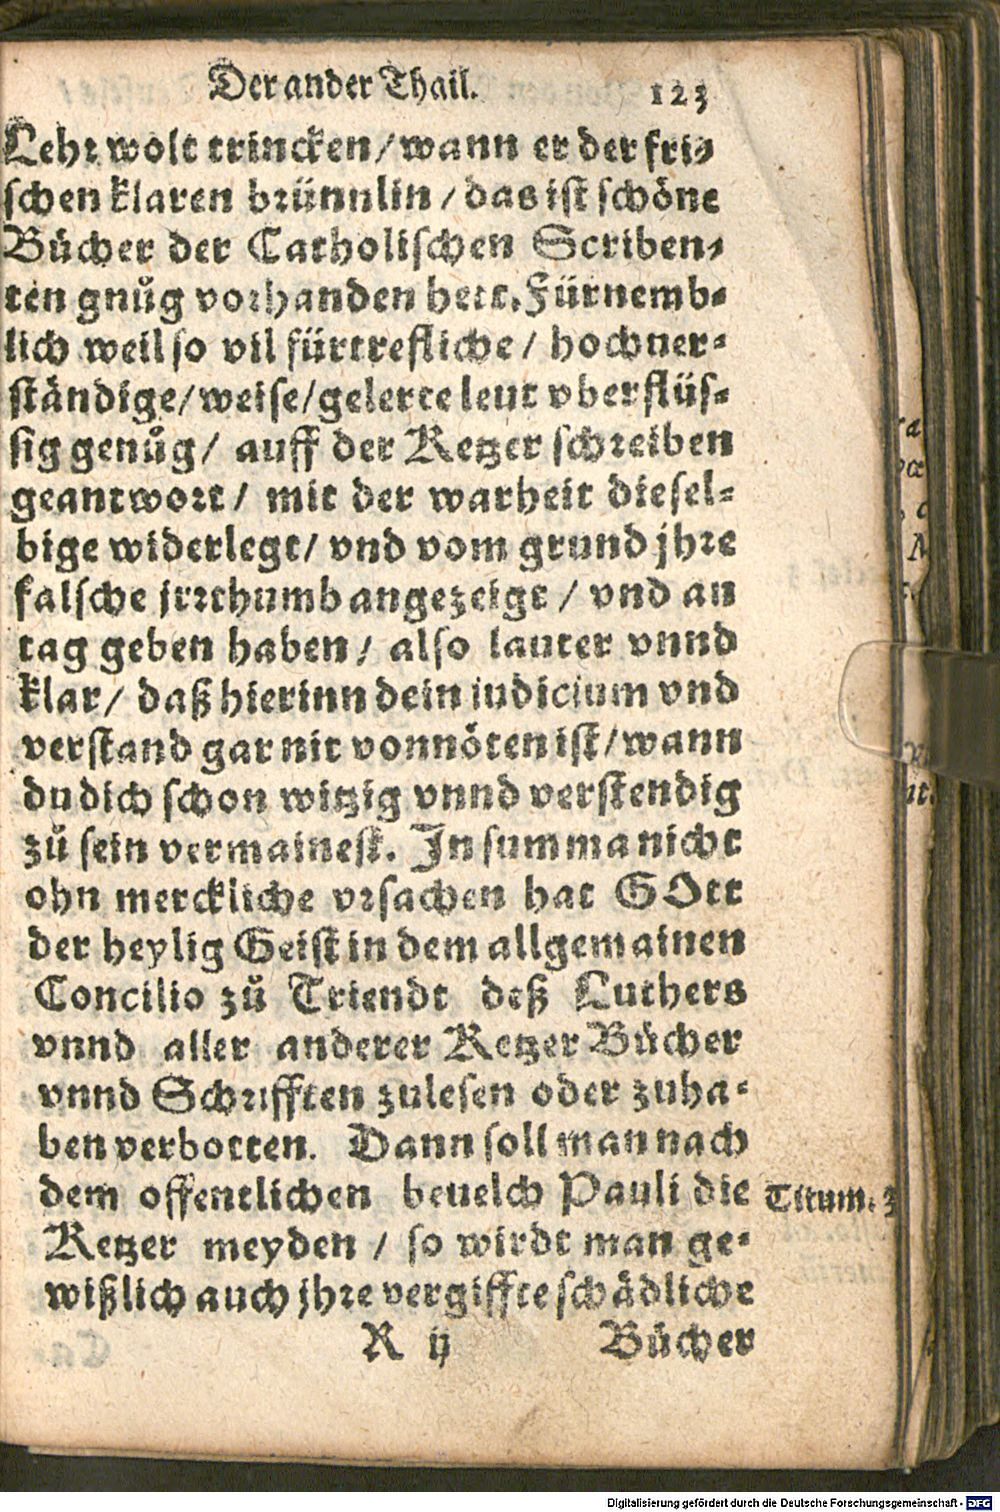 Der ander Thail. 123
Lehr wolt trincken / wann er der fri-
schen klaren brünnlin / das ist schöne
Bücher der Catholischen Scriben-
ten gnůg vorhanden hett. Fürnemb-
lich weil so vil fürtrefliche / hochuer-
ständige / weise / gelerte leut vberflüs-
sig genůg / auff der Ketzer schreiben
geantwort / mit der warheit diesel-
bige widerlegt / vnd vom grund jhre
falsche jrrthumb angezeigt / vnd an
tag geben haben / also lauter vnnd
klar / daß hierinn dein iudicium vnd
verstand gar nit vonnöten ist / wann
du dich schon witzig vnnd verstendig
zů sein vermainest. In summa nicht
ohn merckliche vrsachen hat GOtt
der heylig Geist in dem allgemainen
Concilio zů Triendt deß Luthers
vnnd aller anderer Ketzer Bücher
vnnd Schrifften zulesen oder zuha-
ben verbotten. Dann soll man nach
dem offentlichen beuelch Pauli die Titum. 3
Ketzer meyden / so wirdt man ge-
wißlich auch jhre vergiffte schädliche
R ij Bücher
Digitalisierung gefördert durch die Deutsche Forschungsgemeinschaft - DFG